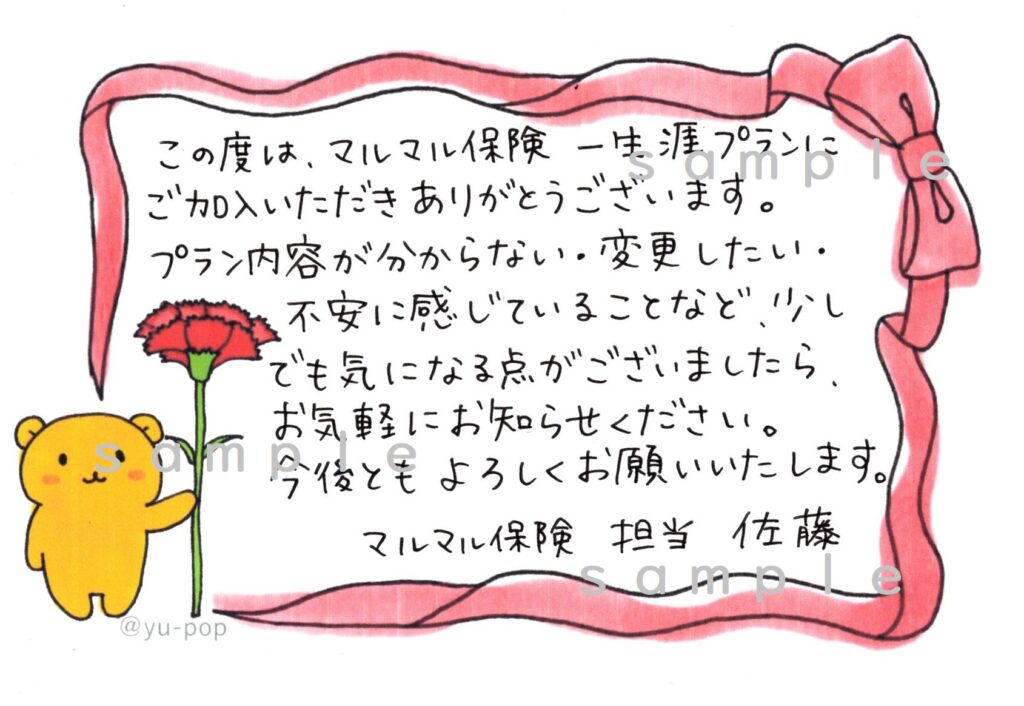 この度は、マルマル保険 一生涯プランに
ご加入いただきありがとうございます。
プラン内容が分からない・変更したい・
不安に感じていることなど、少し
でも気になる点がございましたら、
お気軽にお知らせください。
今後ともよろしくお願いいたします。
マルマル保険 担当 佐藤
sample
sample
sample
@yu-pop